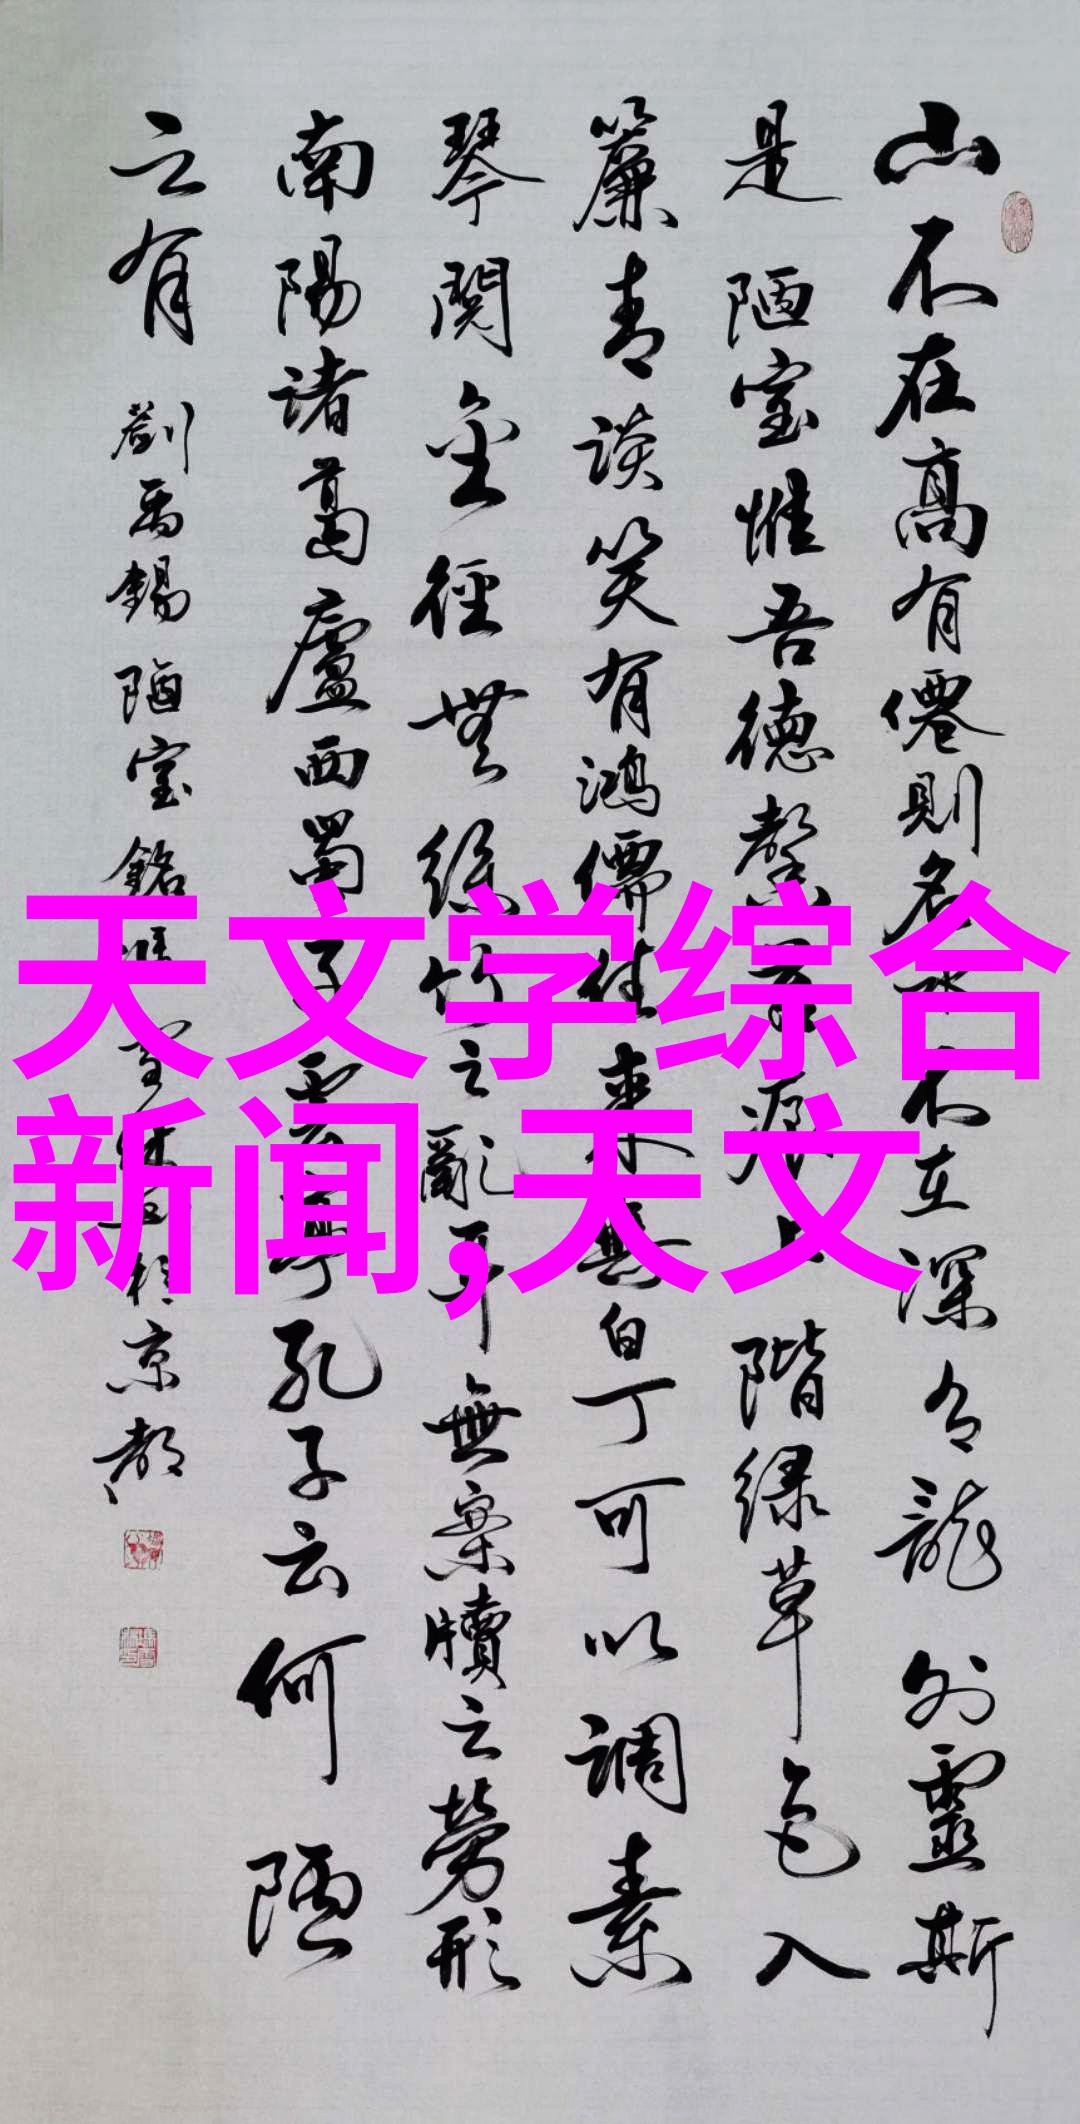 天文学综合
新闻,天文
山不在高有僊則名水不在深有龍則靈斯
是陋室惟吾德馨苔痕上階緑草色入
簾青談笑有鴻儒往來無白丁可以調素
琴閱金徑無絲竹之亂耳無案牘之勞形
南陽諸葛廬西蜀子雲亭孔子云何陋
之有 劉禹錫 陋室銘 於京都